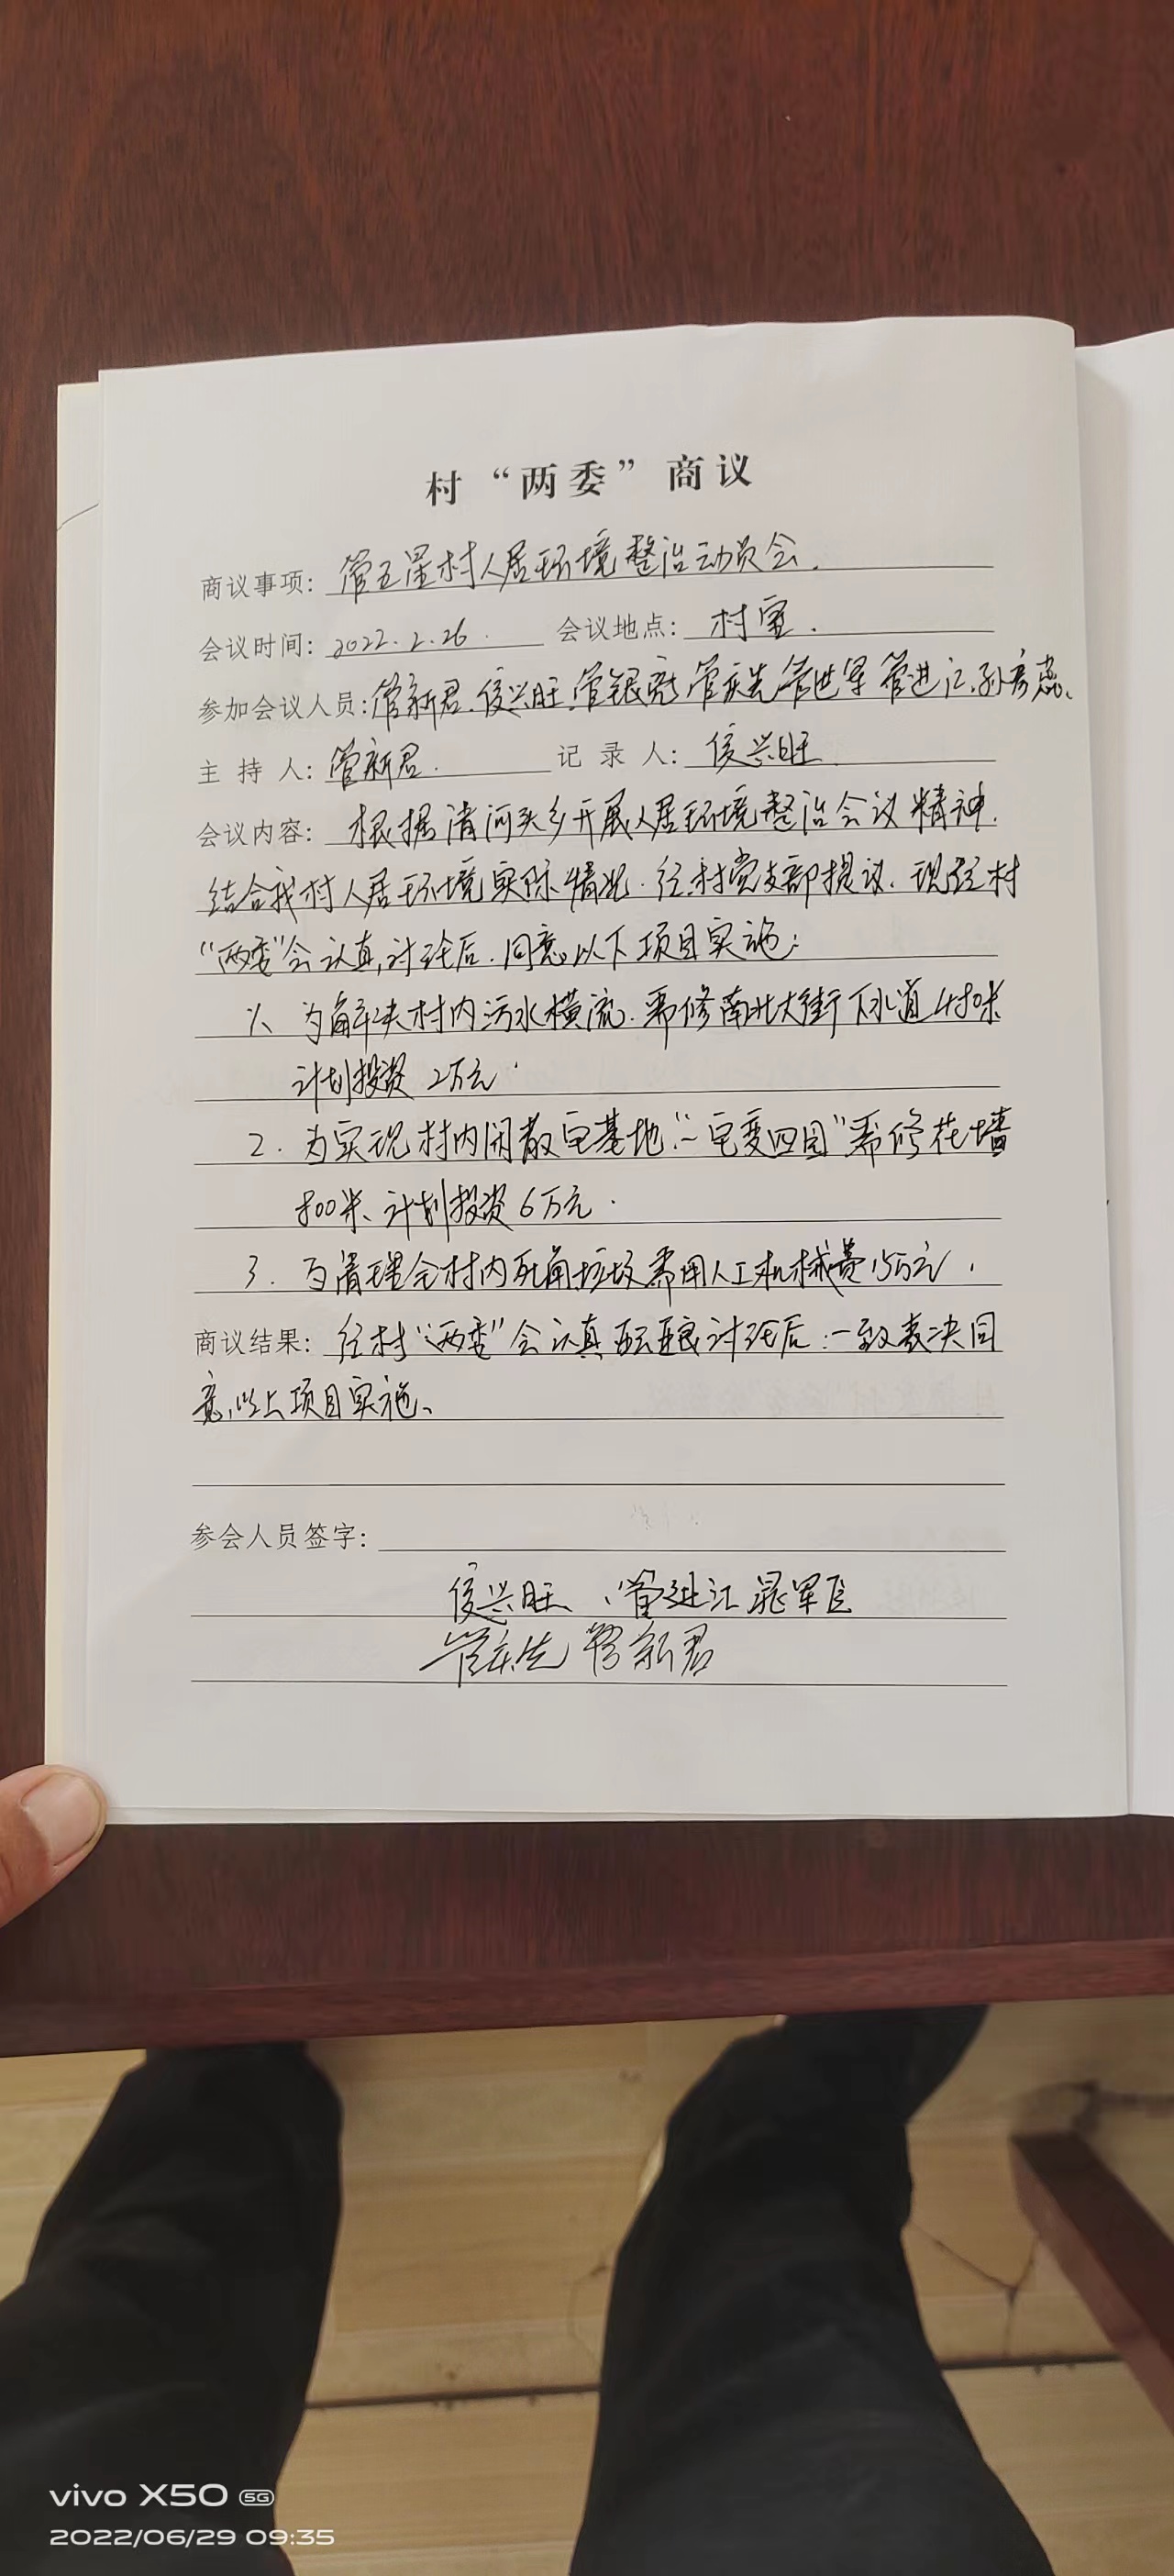 村“两委”商议
商议事项：管五星村人居环境整治动员会.
会议时间：2022.2.26. 会议地点：村室.
参加会议人员：管新君.侯兴旺.管银亮 管庆先 管进军 管进汇.孙彦蕊、
主持人：管新君. 记录人：侯兴旺.
会议内容：根据清河头乡开展人居环境整治会议精神.
结合我村人居环境实际情况.经村党支部提议、现经村
“两委”会认真讨论后.同意以下项目实施：
1、为解决村内污水横流.需修南北大街下水道480米
计划投资2万元.
2.为实现村内闲散宅基地“一宅变四园”需修花墙
800米、计划投资6万元.
3.为清理全村内死角垃圾需用人工机械费1.5万元.
商议结果：经村“两委”会认真酝酿讨论后：一致表决同
意以上项目实施、
参会人员签字：
侯兴旺、管进汇
管庆先 管新君
vivo X50 5G
2022/06/29 09:35